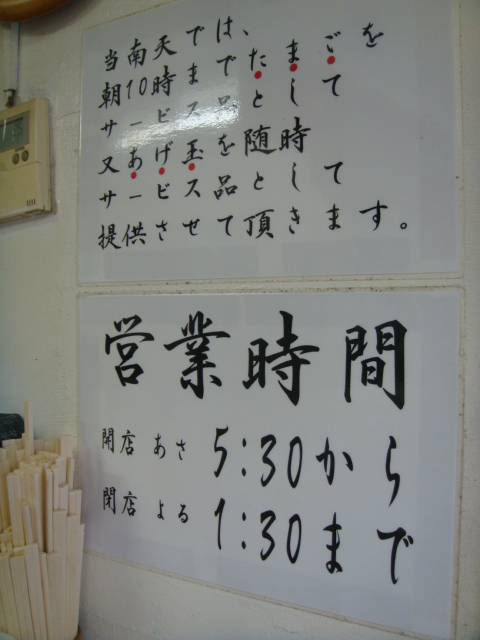 当南天では、たまごを
朝10時まで品として
サービス
又あげ玉を随時
サービス品として
提供させて頂きます。
営業時間
開店 あさ 5:30から
閉店 よる 1:30まで